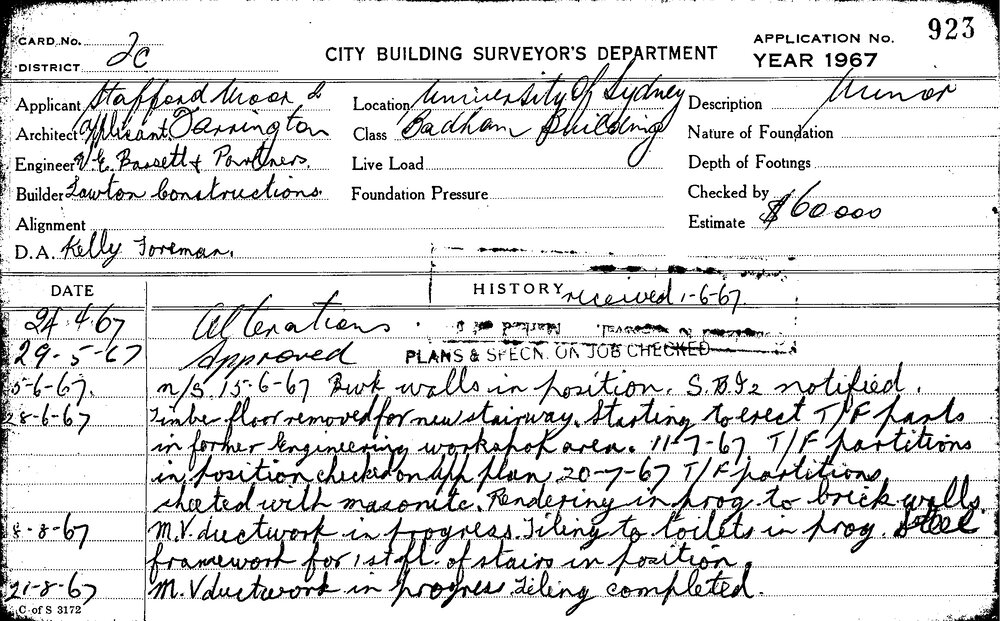 923
CARD No.
DISTRICT 2c
CITY BUILDING SURVEYOR'S DEPARTMENT
APPLICATION No.
YEAR 1967
Applicant Stafford Moor &
Architect Applicant. Farrington
Engineer V.E. Bassett & Partners.
Builder Lawton Constructions.
Alignment
D.A. Kelly Foreman.
Location University Of Sydney
Class Badham Building
Live Load
Foundation Pressure
Description Minor
Nature of Foundation
Depth of Footings
Checked by
Estimate $60000
DATE
HISTORY received 1-6-67.
24.4.67 Alterations
29-5-67 Approved PLANS & SPECN. ON JOB CHECKED
5-6-67. n/s. 15-6-67 Bwk walls in position. S.B.I2 notified.
28-6-67 Timber floor removed for new stairway. Starting to erect T/F parts
in former Engineering workshop area. 11-7-67 T/F partitions
in position checked on App plan 20-7-67 T/F partitions
sheeted with masonite. Rendering in prog. to brick walls.
8-8-67 M.V. ductwork in progress. Tiling to toilets in prog. Steel
framework for 1st fl. of stairs in position.
21-8-67 M.V ductwork in progress Tiling completed.
C. of S 3172